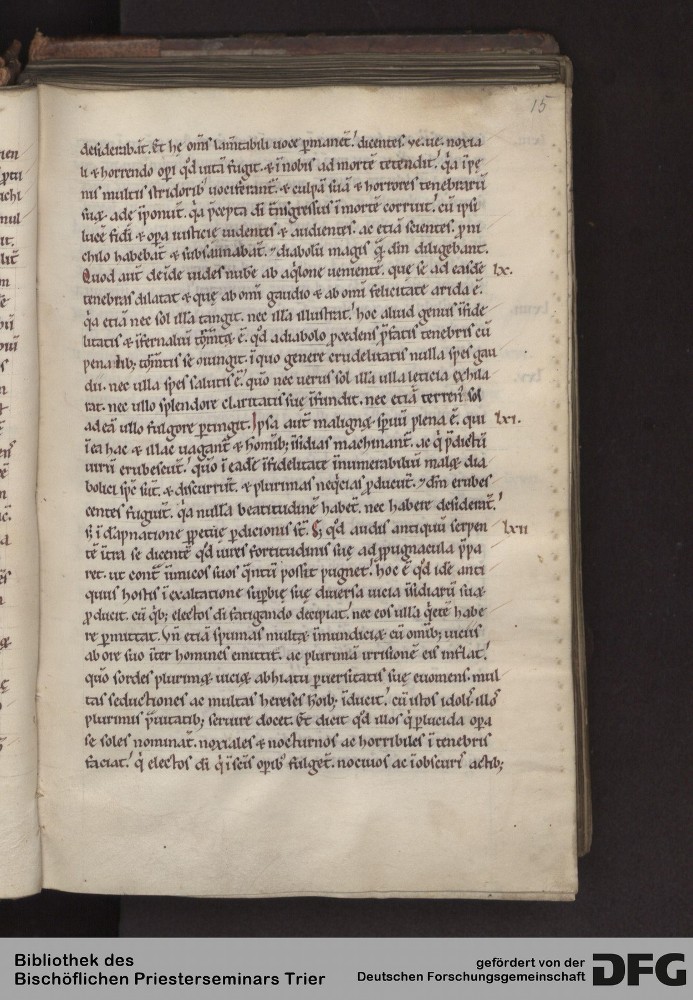 15
desiderab̄it. Et hę om̄s lam̄tabili uoce ꝑmanet! dicentes. ve. ue. noxia
li ⁊ horrendo opi qd̄ uitā fugit. ⁊ ī nobis ad mortē tetendit! q̄a īpę
nis multis stridorib' uociferant̄. ⁊ culpā suā ⁊ horrores tenebrarū
suaꝝ. ade īponūt. q̄a p̄cepta di t̄nsgressus ī mortē corruit! cū ipsi
lucē fidei ⁊ opa iusticie uidentes ⁊ audientes. ac etiā scientes. ꝓ ni
chilo habebāt ⁊ subsannabāt. ⁊ diabolū magis q̄ dm̄ diligebant.
Quod aut̄ deīde uides nubē ab aq̄lone uenientē. que se ad easdē lx.
tenebras dilatat ⁊ quę ab om̄i gaudio ⁊ ab om̄i felicitate arida ē.
q̄a etiā nec sol illā tangit. nec illā illustrat. hoc aliud genus īfide
litatis ⁊ īfernaliū tom̄toꝝ ē. qd̄ a diabolo ꝓcedens p̄fatis tenebris cū
penalib; tom̄tis se ꝯiungit. ī quo genere crudelitatis nulla spes gau
dii. nec ulla spes salutis ē! quo nec uerus sol illā ulla leticia exhila
rat. nec ullo splendore claritatis sue īfundit. nec etiā terren' sol
ad eā ullo fulgore ꝑtingit. Ipsa aut̄ malignoꝝ sp̄uū plena ē. qui lxi.
ī ea hac ⁊ illac uagant̄ ⁊ homīb; īsidias machinant̄. ac q̄ p̄dictū
uirū erubescūt! quō ī eadē īfidelitate īnumerabiliū maloꝝ dia
bolici sp̄c sūt. ⁊ discurrūt. ⁊ plurimas neq̄cias ꝓducūt. ⁊ dm̄ erubes
centes fugiūt. q̄a nullā beatitudinē habēt. nec habere desiderāt!
s; ī dāpnatione ꝑpetuę ꝑdicionis st̄. S; qd̄ audis antiquū serpen lxii
tē īt̄ra se dicentē qd̄ uires fortitudinis suę ad ꝓpugnacula p̄pa
ret. ut cont̄ inīmicos suos q̄ntū possit pugnet! hoc ē qd̄ idē anti
quus hostis ī exaltatione supbię suę diuersa uicia īsidiarū suaꝝ
ꝓducit. cū q̄b; electos di fatigando decipiat! nec eos ullā q̄etē habe
re ꝑmittat. Vn̄ etiā spumas multaꝝ īmundiciaꝝ cū omīb; uiciis
ab ore suo īter homines emittit. ac plurimā irrisionē eis inflat!
quō sordes plurimoꝝ uicioꝝ ab hiatu ꝑuersitatis suę euomens. mul
tas seductiones ac multas hereses hoīb; īducit! cū istos idolis illos
plurimis p̄uitatib; seruire docet. Et dicit qd̄ illos q̄ ꝑlucida opa
se soles nominat̄. noxiales ⁊ nocturnos ac horribiles ī tenebris
faciat! q̄ electos di q̄ ī scīs opib' fulget̄. nociuos ac ī obscuris actib;
Bibliothek des
Bischöflichen Priesterseminars Trier
gefördert von der
Deutschen Forschungsgemeinschaft
DFG